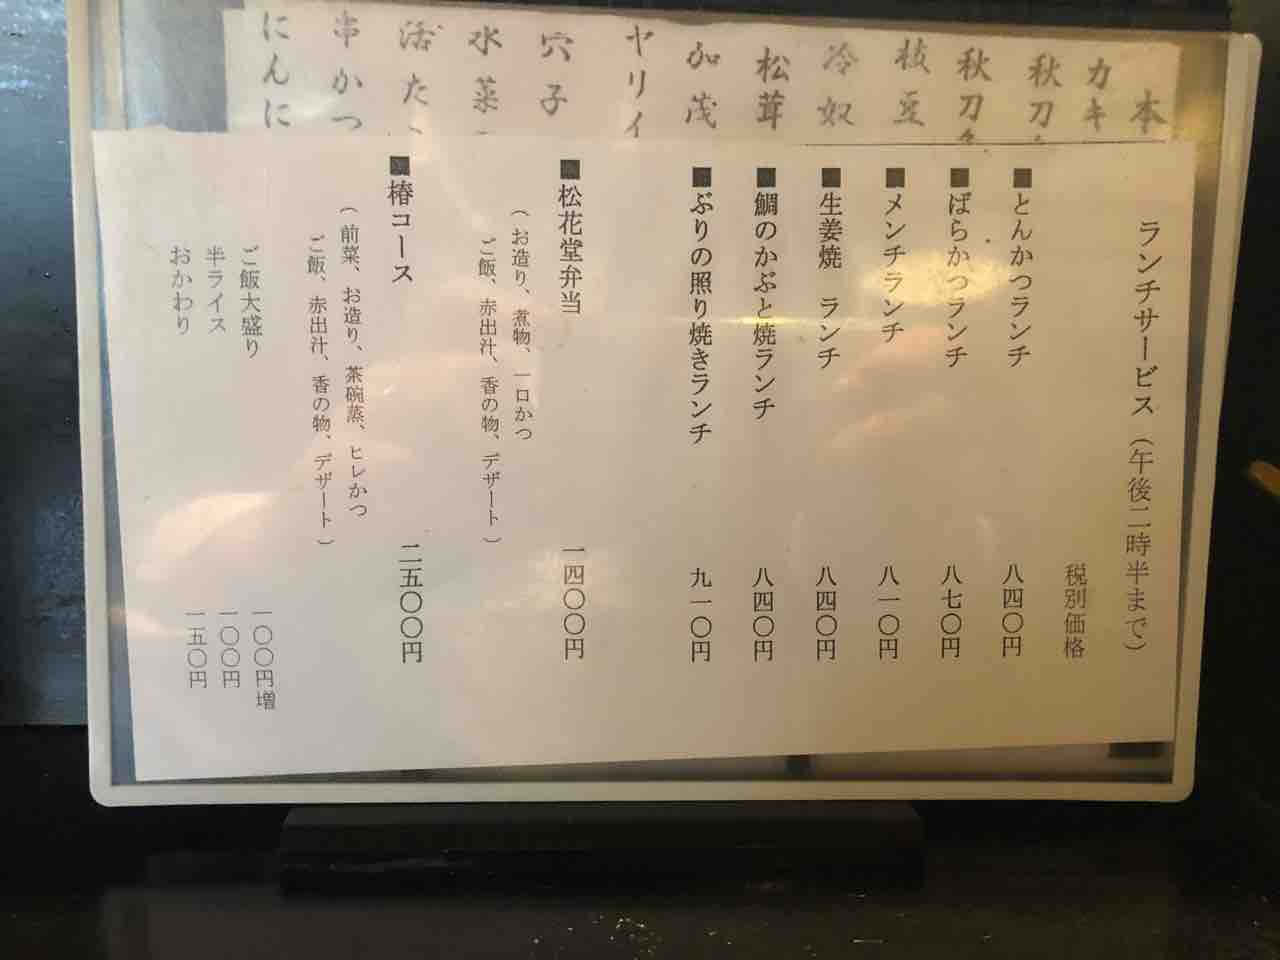 ランチサービス（午後二時半まで）
税別価格
■とんかつランチ 八四〇円
■ばらかつランチ 八七〇円
■メンチランチ 八一〇円
■生姜焼 ランチ 八四〇円
■鯛のかぶと焼ランチ 八四〇円
■ぶりの照り焼きランチ 九一〇円
■松花堂弁当 一四〇〇円
（お造り、煮物、一口かつ
ご飯、赤出汁、香の物、デザート）
■椿コース 二五〇〇円
（前菜、お造り、茶碗蒸、ヒレかつ
ご飯、赤出汁、香の物、デザート）
ご飯大盛り 一〇〇円増
半ライス 一〇〇円
おかわり 一五〇円
本
カキ
秋刀
秋刀
枝豆
冷奴
松茸
加茂
ヤリイ
穴子
水菜
活た
串かつ
にんに